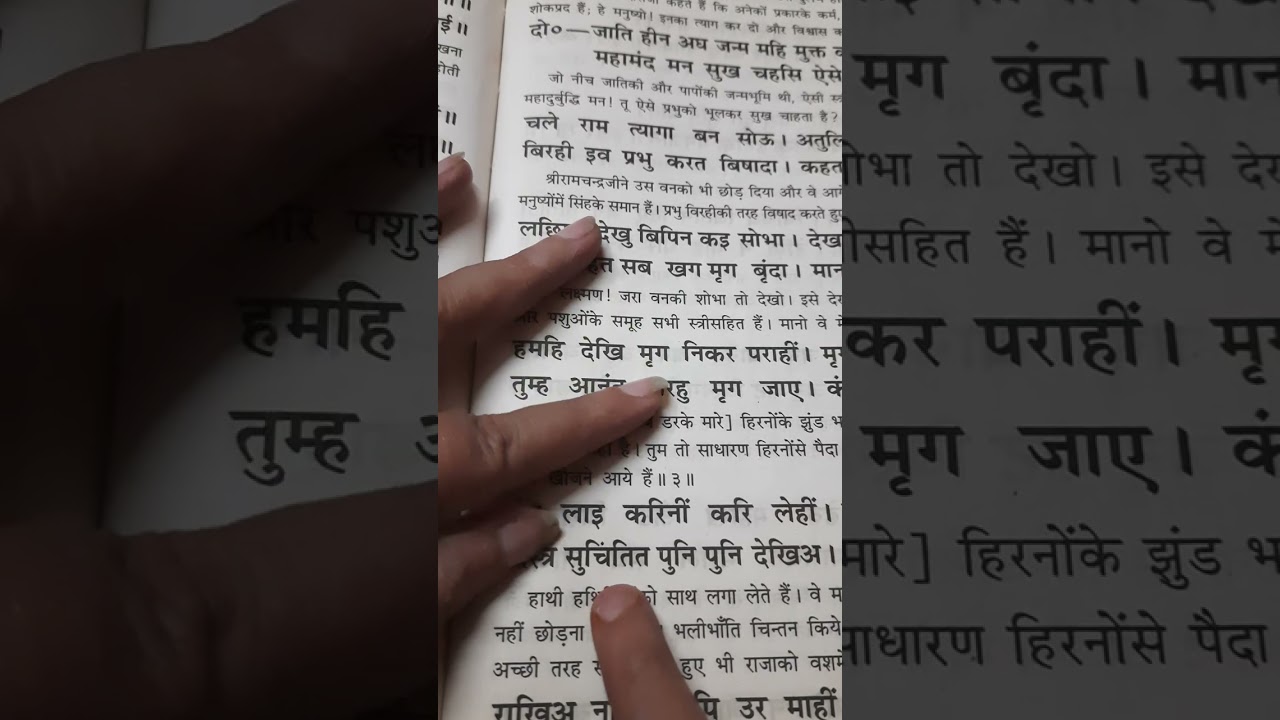 शोकप्रद हैं; हे मनुष्यो! इनका त्याग कर दो और विश्वास क
दो०—जाति हीन अघ जन्म महि मुक्त
महामंद मन सुख चहसि ऐसे
जो नीच जातिकी और पापोंकी जन्मभूमि थी, ऐसी
महादुर्बुद्धि मन! तू ऐसे प्रभुको भूलकर सुख चाहता है?
चले राम त्यागा बन सोऊ। अतुलि
बिरही इव प्रभु करत बिषादा। कहत
श्रीरामचन्द्रजीने उस वनको भी छोड़ दिया और वे आगे
मनुष्योंमें सिंहके समान हैं। प्रभु विरहीकी तरह विषाद करते हुए
देखु बिपिन कइ सोभा। देख
सब खग मृग बृंदा। मान
लक्ष्मण! जरा वनकी शोभा तो देखो। इसे दे
पशुओंके समूह सभी स्त्रीसहित हैं। मानो वे मे
हमहि देखि मृग निकर पराहीं। मृ
तुम्ह आनंद करहु मृग जाए। कं
डरके मारे] हिरनोंके झुंड भ
है। तुम तो साधारण हिरनोंसे पैदा
खोजने आये हैं॥३॥
लाइ करिनीं करि लेहीं।
सुचिंतित पुनि पुनि देखिअ।
हाथी को साथ लगा लेते हैं। वे म
नहीं छोड़ना भलीभाँति चिन्तन किये
अच्छी तरह हुए भी राजाको वशमें
राखिअ उर माहीं